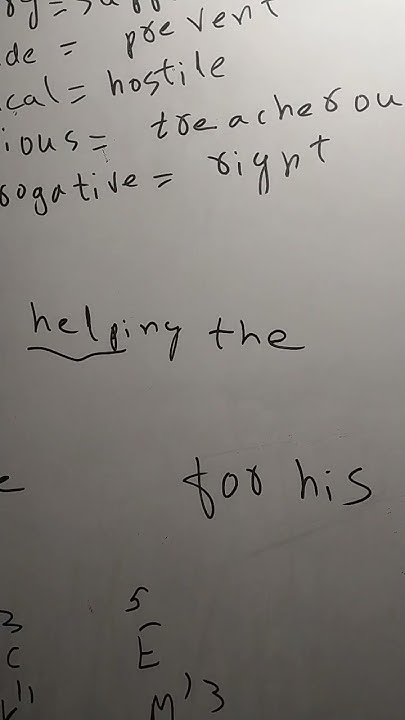 de = prevent
cal = hostile
ious = treacherou
rogative = right
helping the
for his
5
3
C E
M'3